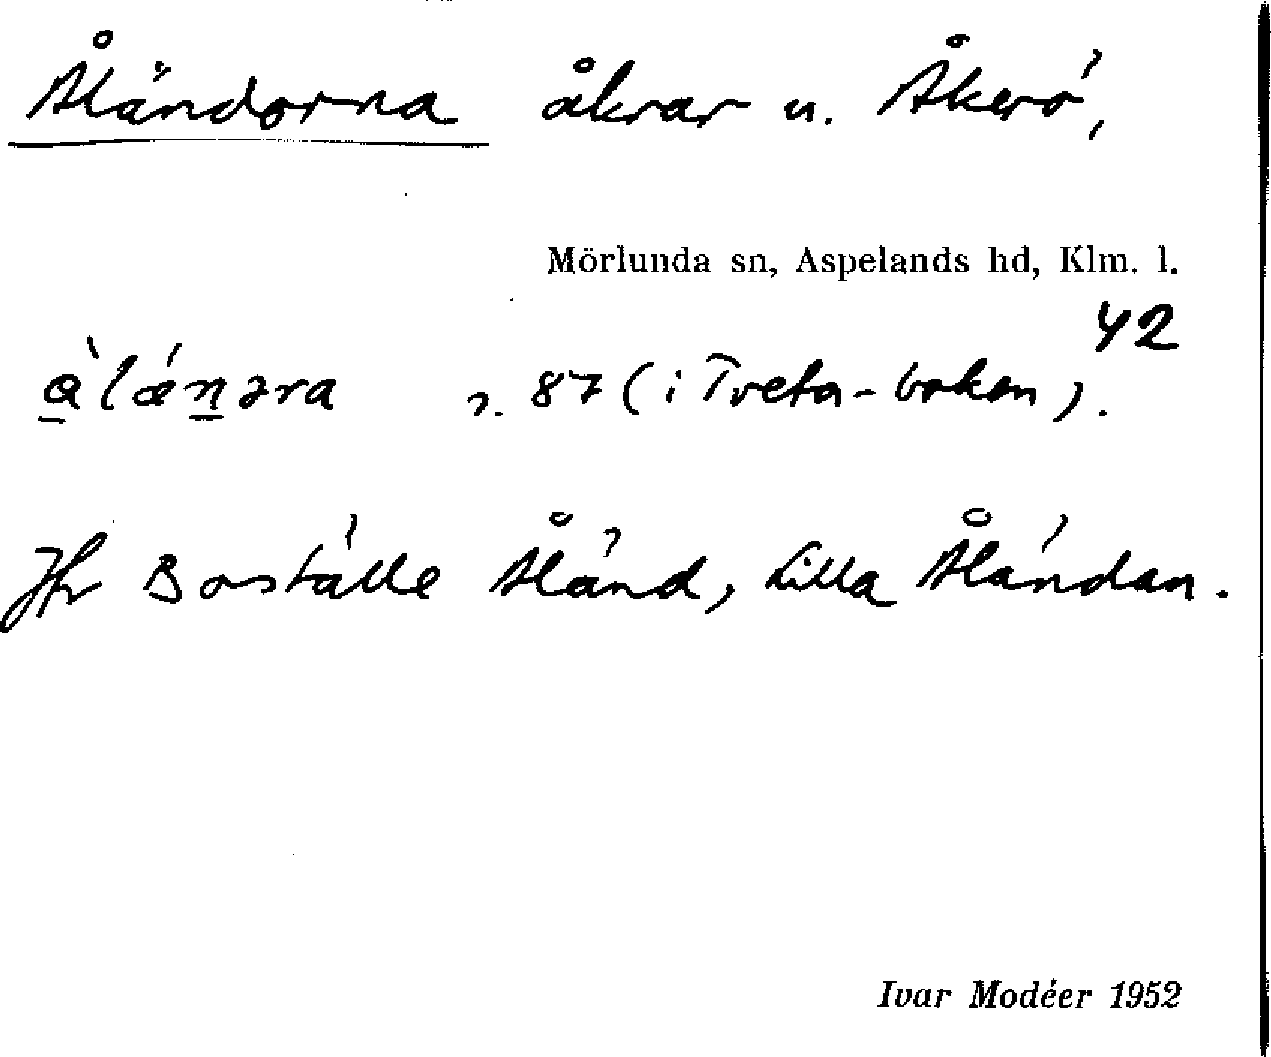 Åländorna åkrar u. Åkerö,
Mörlunda sn, Aspelands hd, Klm. l.
42
ɑ̀lǽnəra s. 87 (i Tveta-boken).
Jfr Boställe Åländ, Lilla Åländan.
Ivar Modéer 1952